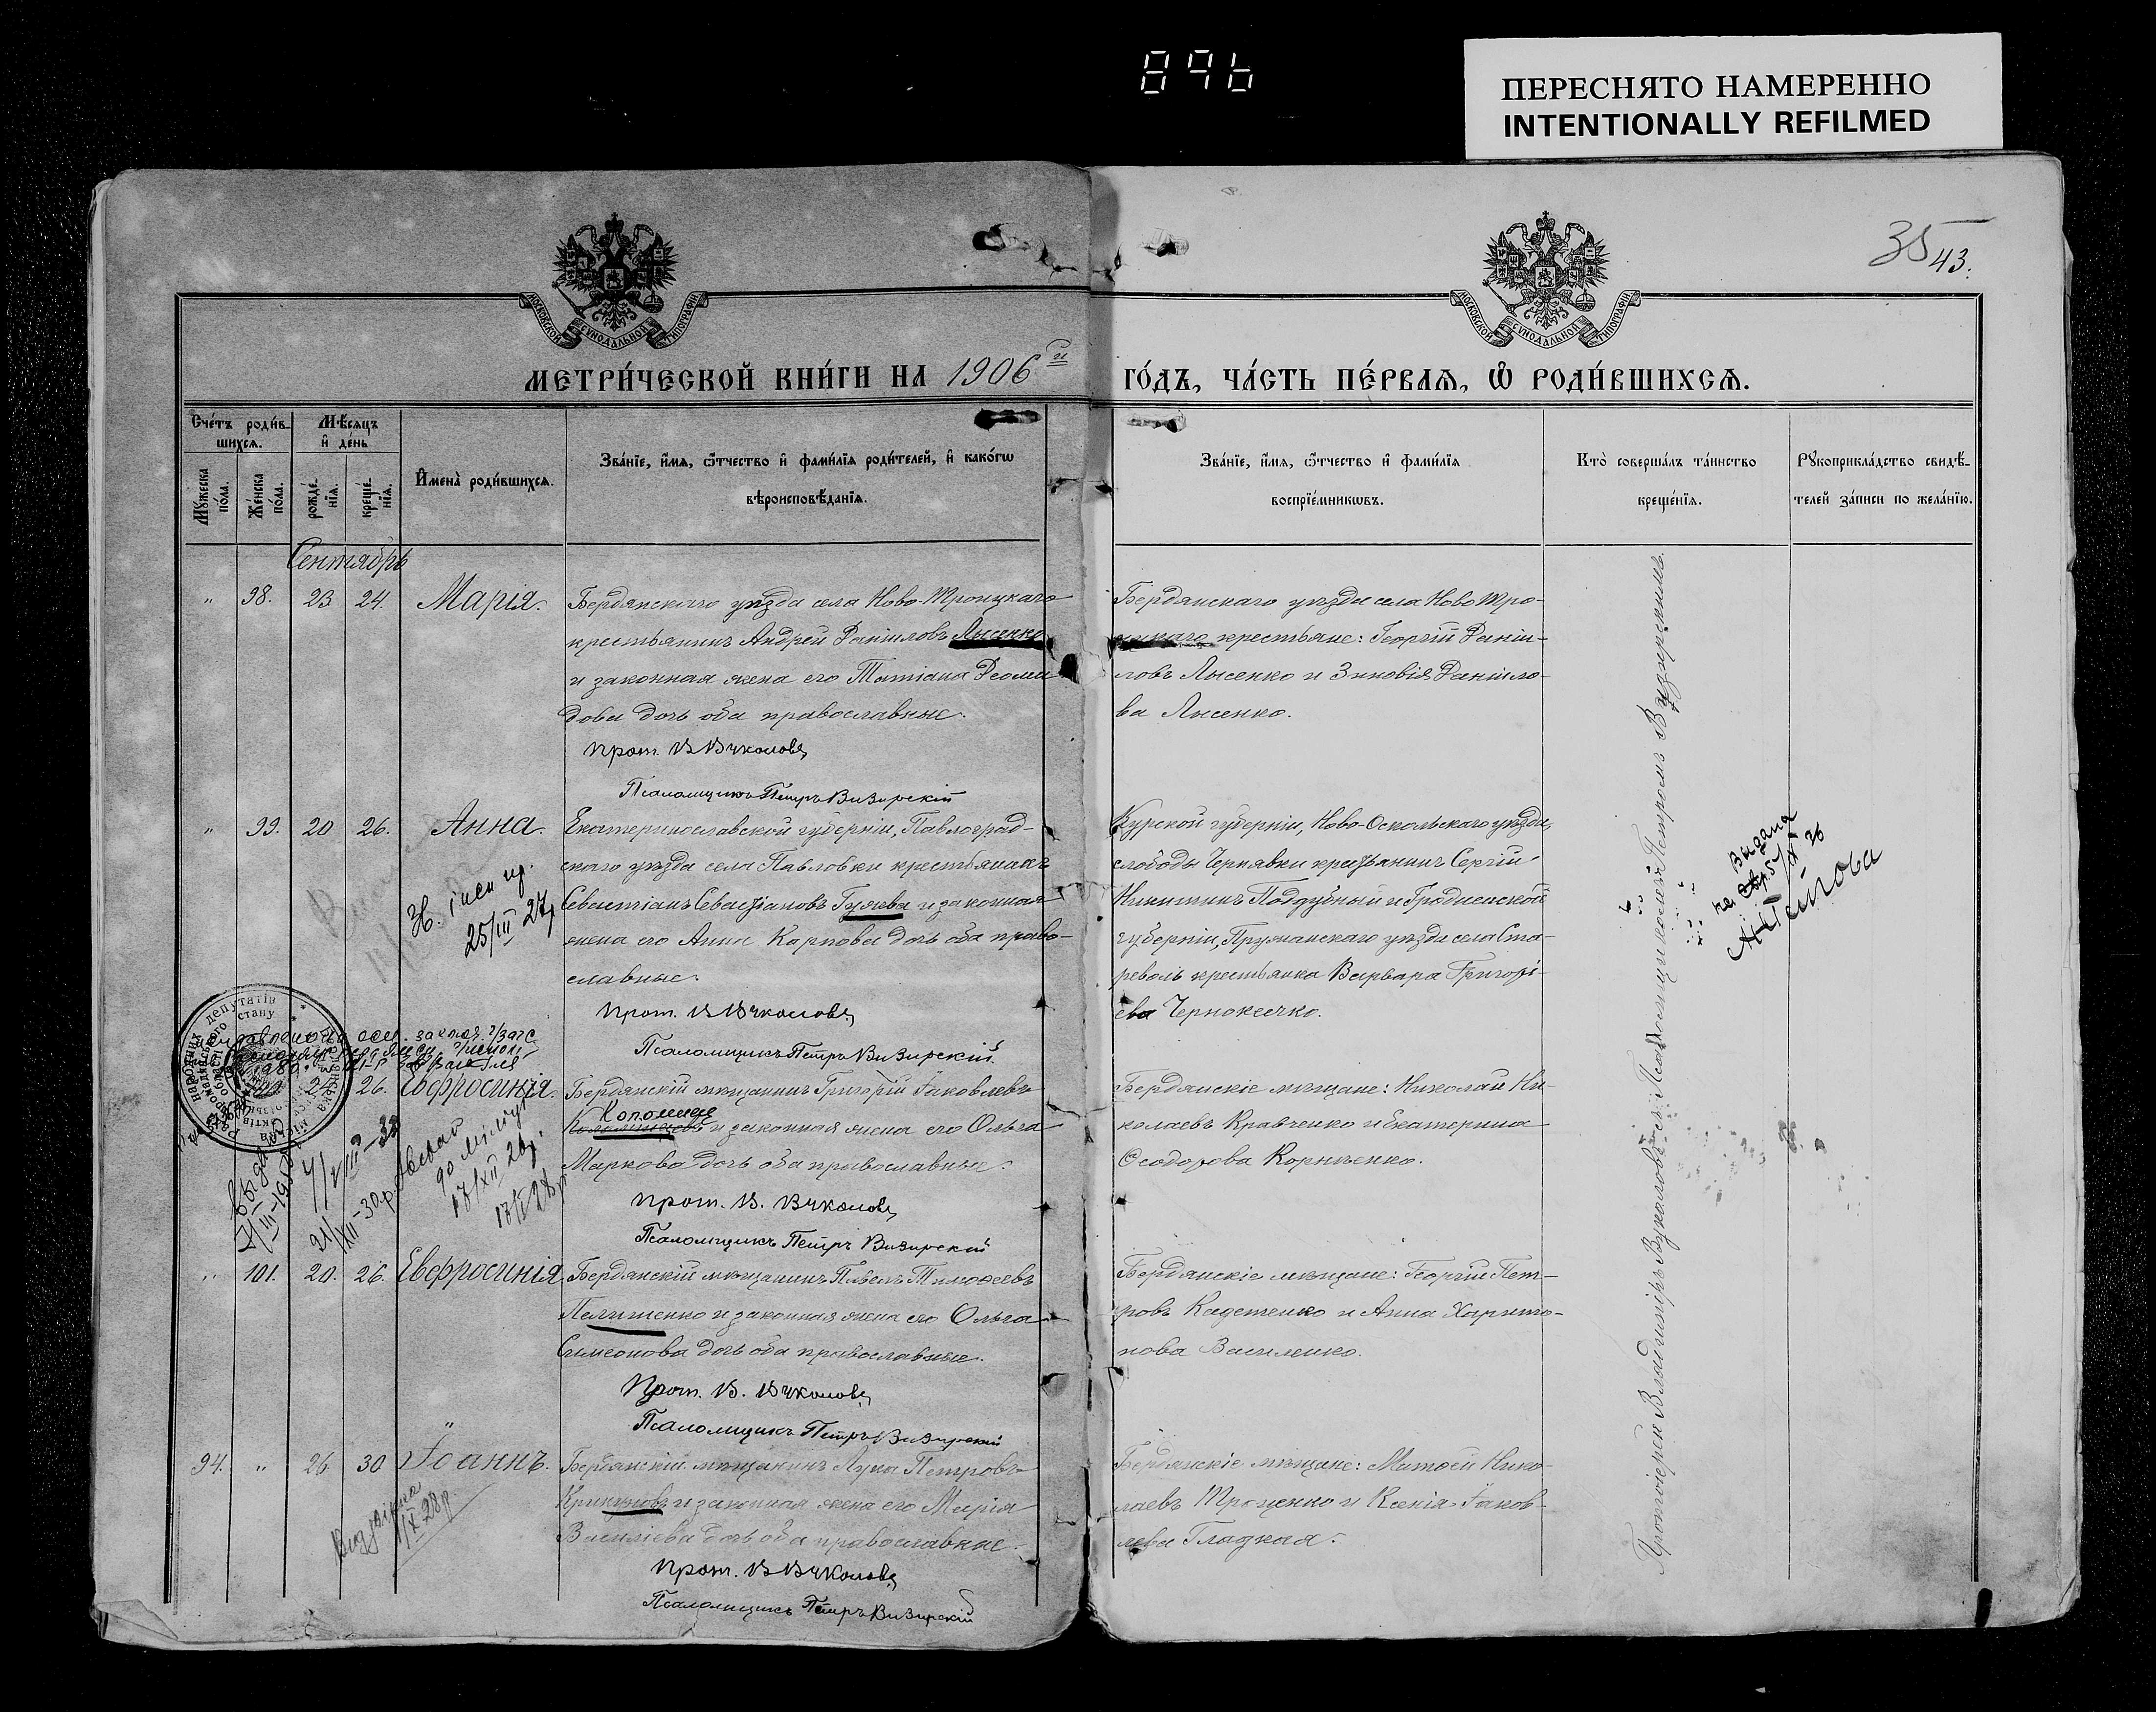 896
ПЕРЕСНЯТО НАМЕРЕННО
INTENTIONALLY REFILMED
35 43.
МОСКОВСКОЙ СУНОДАЛЬНОЙ ТИПОГРАФІИ
МОСКОВСКОЙ СУНОДАЛЬНОЙ ТИПОГРАФІИ
МЕТРИ́ЧЕСКОЙ КНИ́ГИ НА 1906й
ГО́ДЪ, ЧА́СТЬ ПЕ́РВАѦ, Ѡ҆ РОДИ́ВШИХСѦ.
Сче́тъ роди́в-
шихсѧ.
Мꙋ́жеска по́ла.
Же́нска по́ла.
Мѣ́сѧцъ
и҆ де́нь
рожде́-нїѧ.
креще́-нїѧ.
И҆мена̀ роди́вшихсѧ.
Зва́нїе, и҆́мѧ, ѻ҆́тчество и҆ фами́лїѧ роди́телей, и҆ како́гѡ
вѣроисповѣ́данїѧ.
Зва́нїе, и҆́мѧ, ѻ҆́тчество и҆ фами́лїѧ
воспрїе́мникѡвъ.
Кто̀ соверша́лъ та́инство
креще́нїѧ.
Рꙋкоприкла́дство свидѣ́-
телей за́писи по жела́нїю.
Сентябрь
" 98. 23 24. Марія.
Бердянскаго уѣзда села Ново-Троицкаго
крестьянинъ Андрей Даніиловъ Лысенко
и законная жена его Татіана Деоми
дова дочь оба православные.
Прот. В Вуколовъ
Псаломщикъ Петръ Визирскій
Бердянскаго уѣзда села Ново Тро-
ицкаго крестьяне: Георгій Даніи-
ловъ Лысенко и Зиновія Даніило-
ва Лысенко.
" 99. 20 26. Анна.
Екатеринославской губерніи, Павлоград-
скаго уѣзда села Павловки крестьянинъ
Севастіанъ Севастіановъ Гужва и законная
жена его Анна Карпова дочь оба право-
славные.
Прот. В Вуколовъ
Псаломщикъ Петръ Визирскій
25/III 27
Курской губерніи, Ново-Оскольскаго уѣзда,
слободы Чернявки крестьянинъ Сергій
Никитинъ Поддубный и Гродненской
губерніи, Пружанскаго уѣзда села Ста-
револь крестьянка Варвара Григорі-
ева
Видана
24. 26. Евфросинія.
Бердянскій мѣщанинъ Григорій Іаковлевъ
Коломіецъ и законная жена его Ольга
Маркова дочь оба православные.
Прот. В. Вуколовъ
Псаломщикъ Петръ Визирскій
Бердянскіе мѣщане: Николай Ни-
колаевъ Кравченко и Екатерина
Ѳеодорова Корніенко.
" 101. 20. 26. Евфросинія
Бердянскій мѣщанинъ Павелъ Тимоѳеевъ
Пелишенко и законная жена его Ольга
Симеонова дочь оба православные.
Прот. В. Вуколовъ
Псаломщикъ Петръ Визирскій
Бердянскіе мѣщане: Георгій Пет-
ровъ Кадетенко и Анна Харито-
нова Василенко.
94. " 26 30 Іоаннъ.
Бердянскій мѣщанинъ Лука Петровъ
Крикуновъ и законная жена его Марія
Василіева дочь оба православные.
Прот. В Вуколовъ
Псаломщикъ Петръ Визирскій
Бердянскіе мѣщане: Матѳей Нико-
лаевъ Троценко и Ксенія Іаков-
лева Гладкая.
Протоіерей Владиміръ Вуколовъ съ Псаломщикомъ Петромъ Визирскимъ.